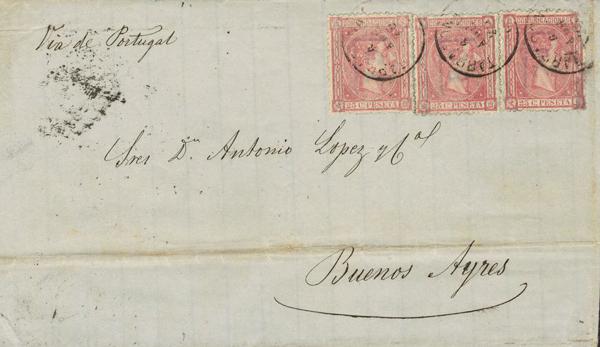 Via de Portugal
COMUNICACIONES
25 C. PESETA 25 C. PESETA 25 C. PESETA
Sres Dn Antonio Lopez y Ca
Buenos Ayres